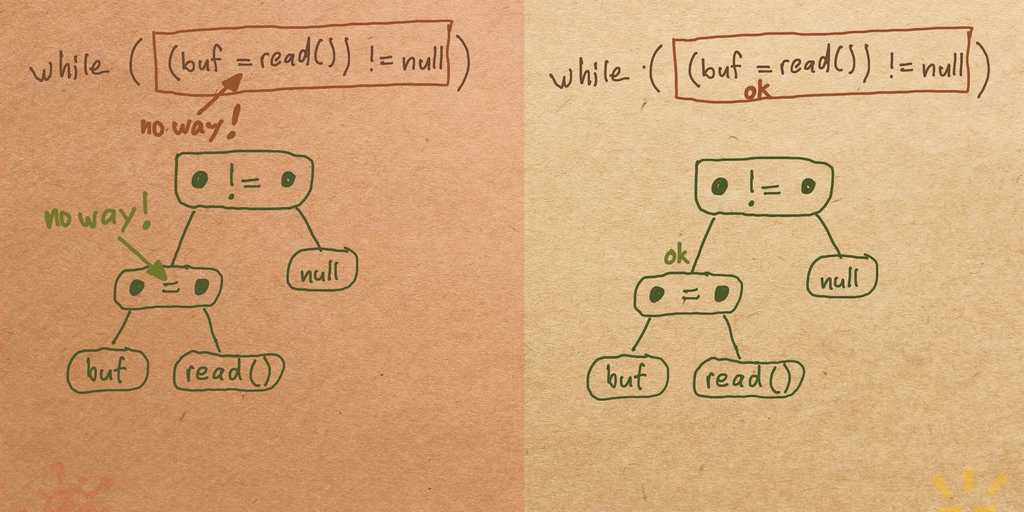 while ( (buf = read()) != null )
no way!
● != ●
no way!
null
● = ●
buf
read()
while ( (buf = read()) != null )
ok
● != ●
ok
null
● = ●
buf
read()